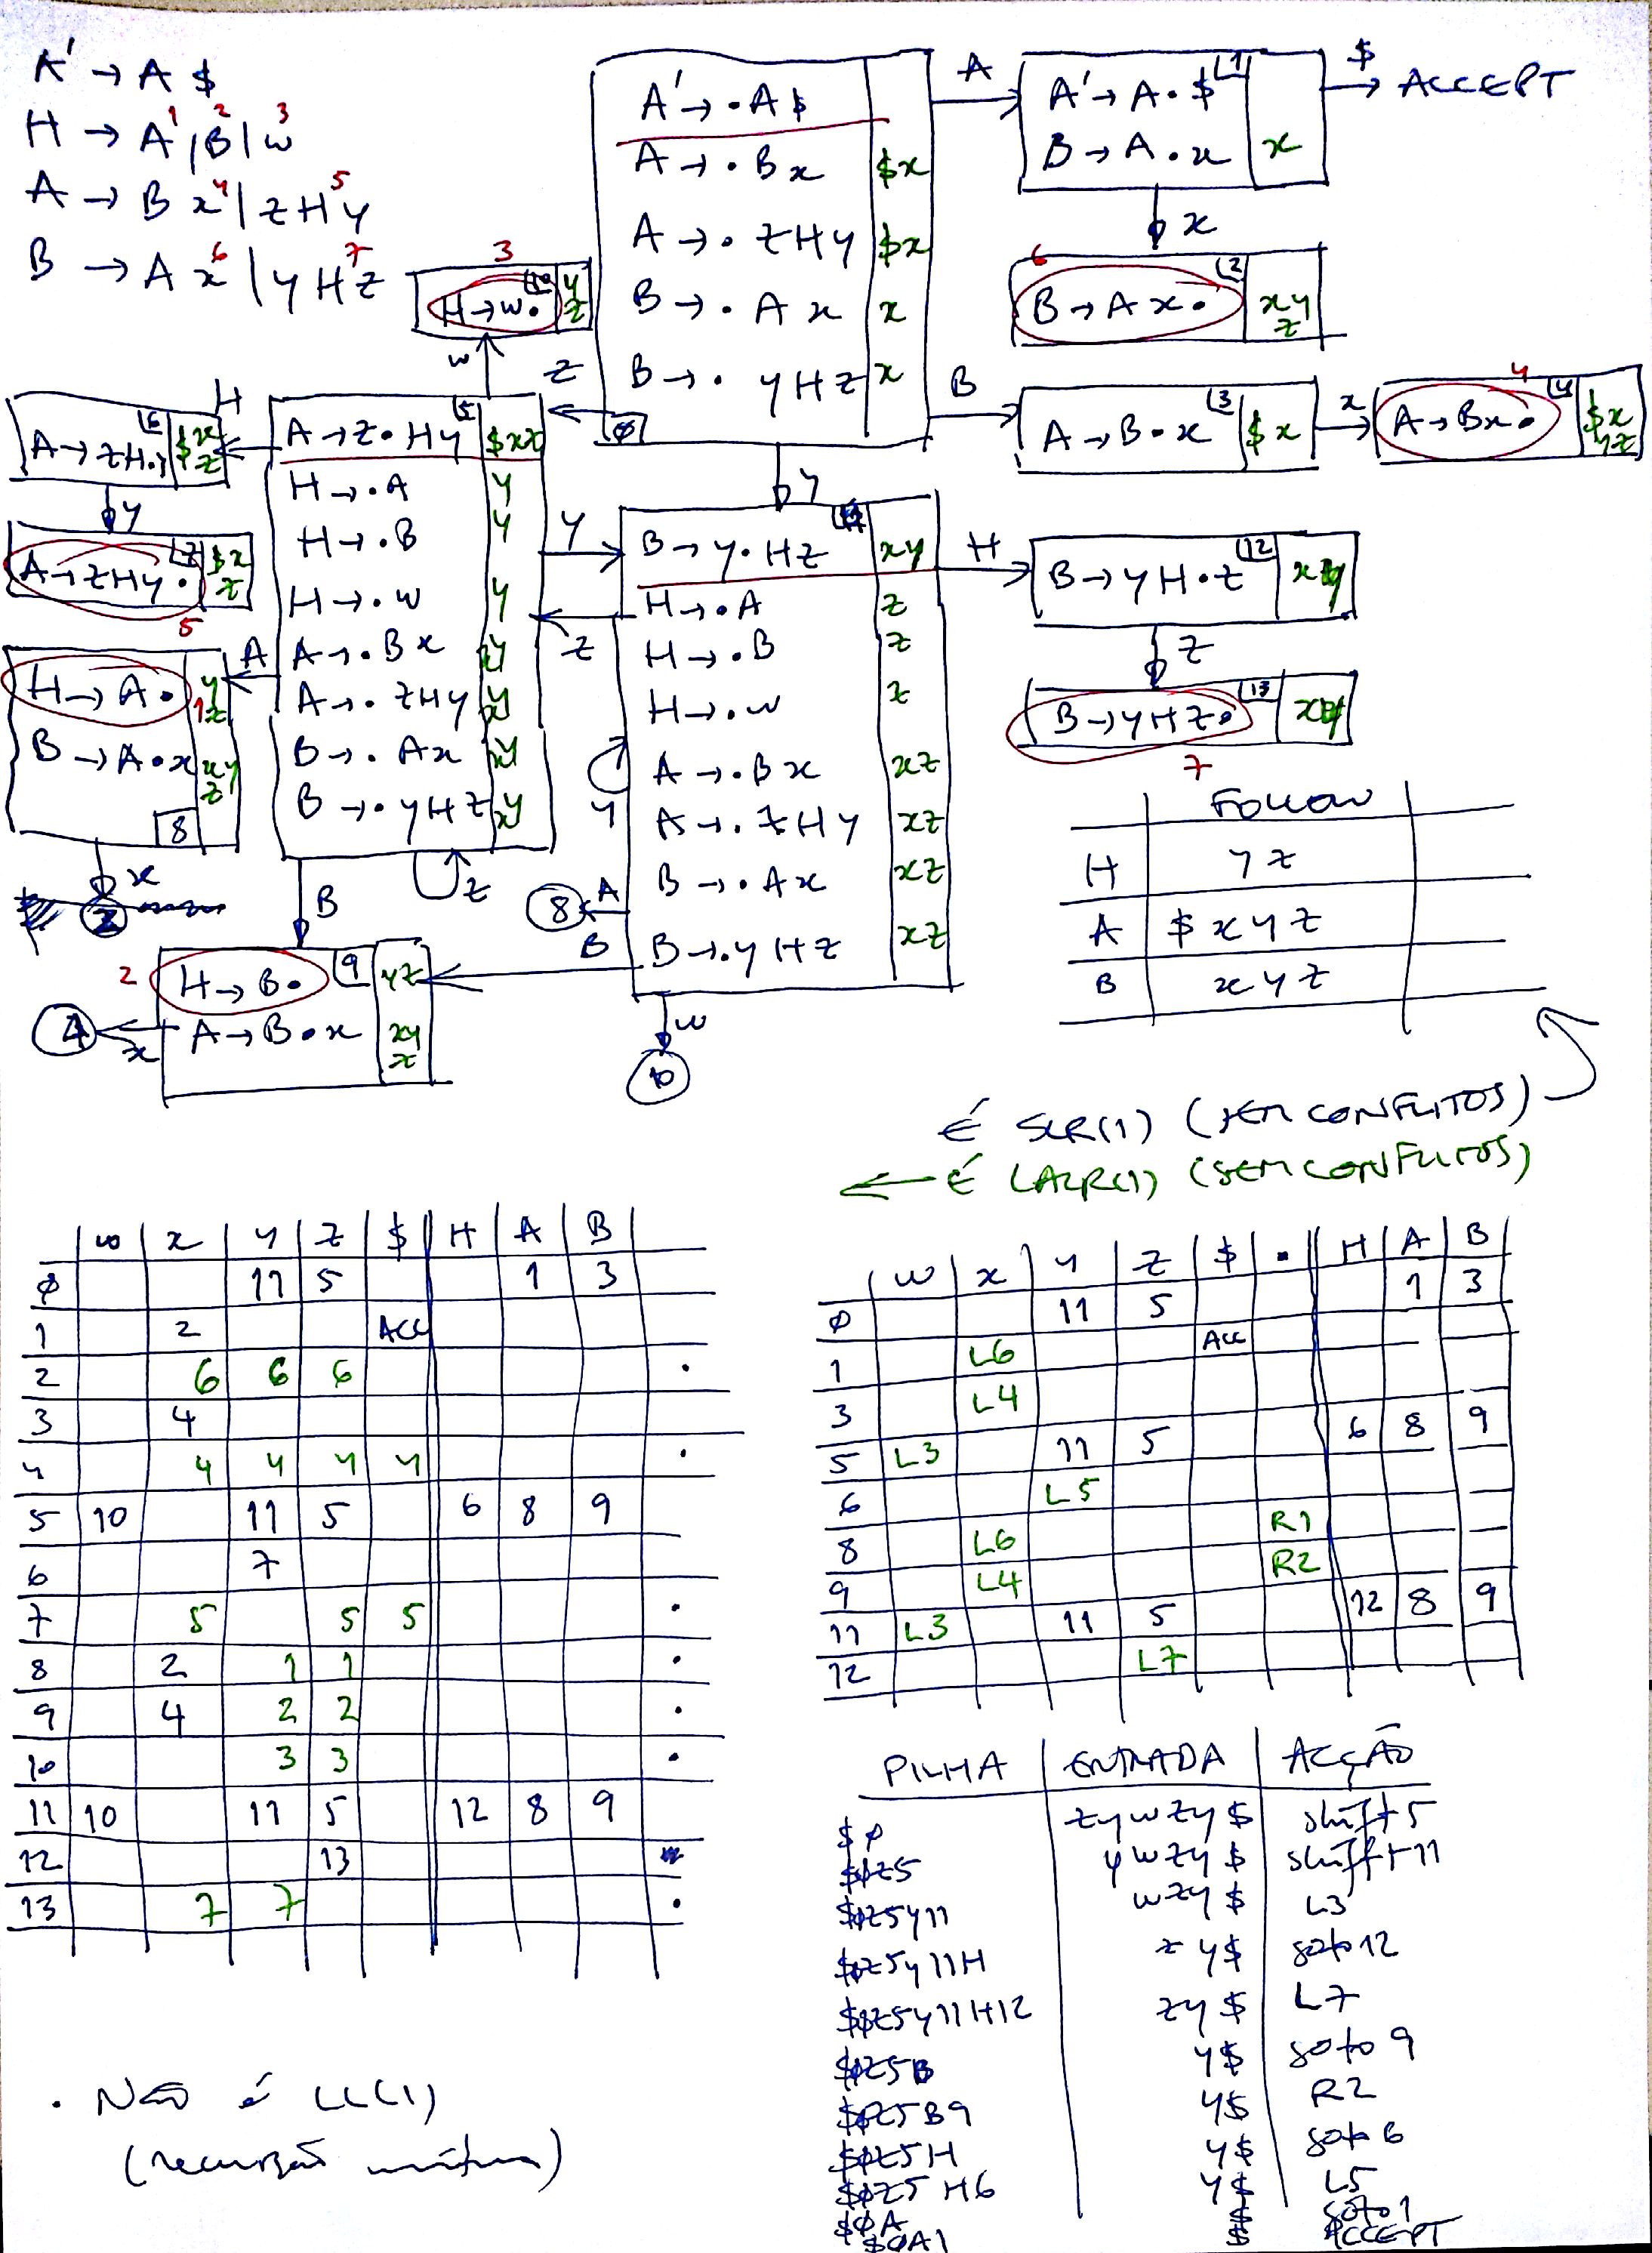 A' → A $
H → A¹ | B² | w³
A → B x⁴ | z H y⁵
B → A x⁶ | y H z⁷
A' → · A $
A → · B x $x
A → · z H y $x
B → · A x x
B → · y H z x
0
A
A' → A · $ 1
B → A · x x
$
→ ACCEPT
x
6
B → A x · 2 xy
z
B
A → B · x 3 $ x
x
4
A → B x · 4 $x
yz
3
H → w · 10 y
z
w
z
A → z · H y 5 $xz
H → · A y
H → · B y
H → · w y
A → · B x
A → · z H y
B → · A x
B → · y H z
H
6
y
A → z H y · 7 $x
z
5
A
H → A · y
z
1
B → A · x xy
z
8
x
2
B
z
2
H → B · 9 yz
A → B · x xy
z
x
4
y
y
z
B → y · H z xy
H → · A z
H → · B z
H → · w z
A → · B x xz
A → · z H y xz
B → · A x xz
B → · y H z xz
y
A
8
B
w
10
H
B → y H · z 12
z
B → y H z · 13
7
FOLLOW
H y z
A $ x y z
B x y z
É SLR(1) (SEM CONFLITOS)
← É LALR(1) (SEM CONFLITOS)
w x y z $ H A B
0 11 5 1 3
1 2 ACC
2 6 6 6 ·
3 4
4 4 4 4 4 ·
5 10 11 5 6 8 9
6 7
7 5 5 5 ·
8 2 1 1 ·
9 4 2 2 ·
10 3 3 ·
11 10 11 5 12 8 9
12 13
13 7 7 ·
w x y z $ · H A B
0 11 5 1 3
1 L6 ACC
3 L4
5 L3 11 5 6 8 9
6 L5
8 L6 R1
9 L4 R2
11 L3 11 5 12 8 9
12 L7
PILHA ENTRADA ACÇÃO
$0 zywzy$ shift 5
$0z5 ywzy$ shift 11
$0z5y11 wzy$ L3
$0z5y11H zy$ goto 12
$0z5y11H12 zy$ L7
$0z5B y$ goto 9
$0z5B9 y$ R2
$0z5H y$ goto 6
$0z5H6 y$ L5
$0A $ goto 1
$0A1 $ ACCEPT
· NÃO é LL(1)
(recursão mútua)